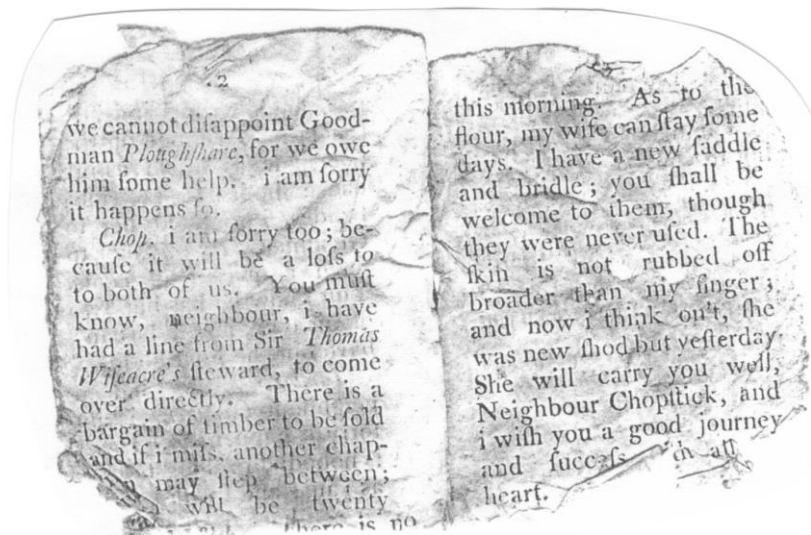 2
we cannot diſappoint Good-
man Ploughſhare, for we owe
him ſome help. i am ſorry
it happens ſo.
Chop. i am ſorry too; be-
cauſe it will be a loſs to
to both of us. You muſt
know, neighbour, i have
had a line from Sir Thomas
Wiſeacre's ſteward, to come
over directly. There is a
bargain of timber to be ſold
and if i miſs, another chap-
may ſtep between;
will be twenty
there is no
this morning. As to the
flour, my wife can ſtay ſome
days. I have a new ſaddle
and bridle; you ſhall be
welcome to them, though
they were never uſed. The
ſkin is not rubbed off
broader than my finger;
and now i think on't, ſhe
was new ſhod but yeſterday.
She will carry you well,
Neighbour Chopſtick, and
i wiſh you a good journey
and ſucceſs all
heart.